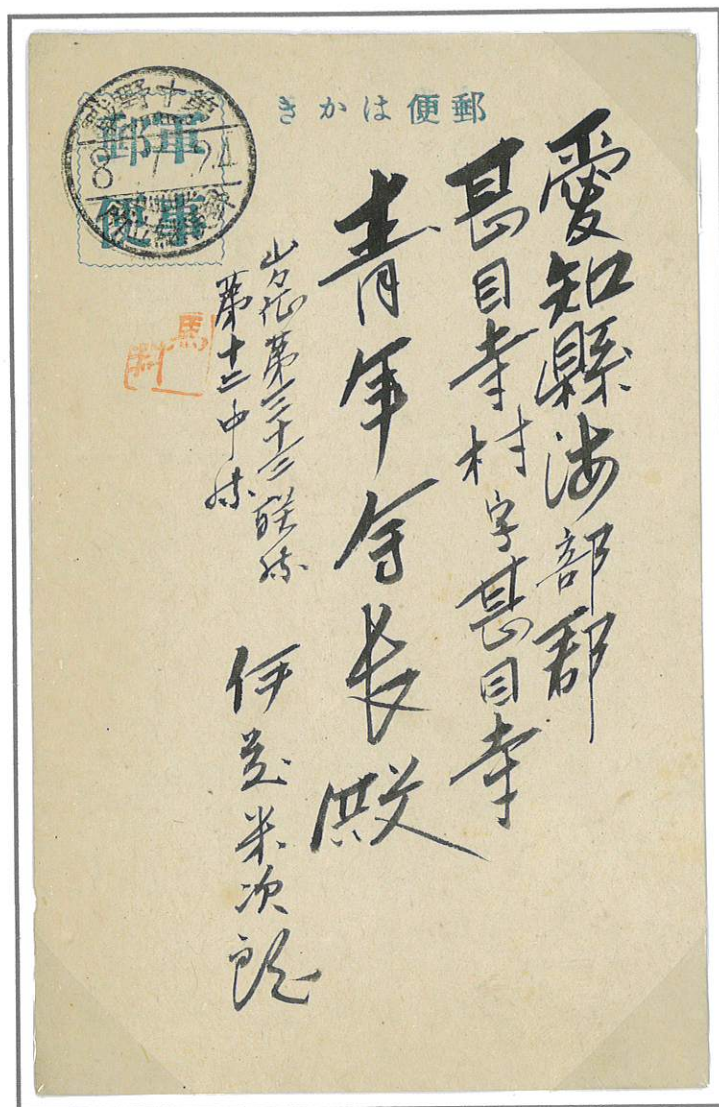 郵便はかき
軍事
郵便
第十野戦
愛知縣海部郡
甚目寺村字甚目寺
青年会長殿
第三十三聯隊
第十二中隊
伊藤米次郎
馬